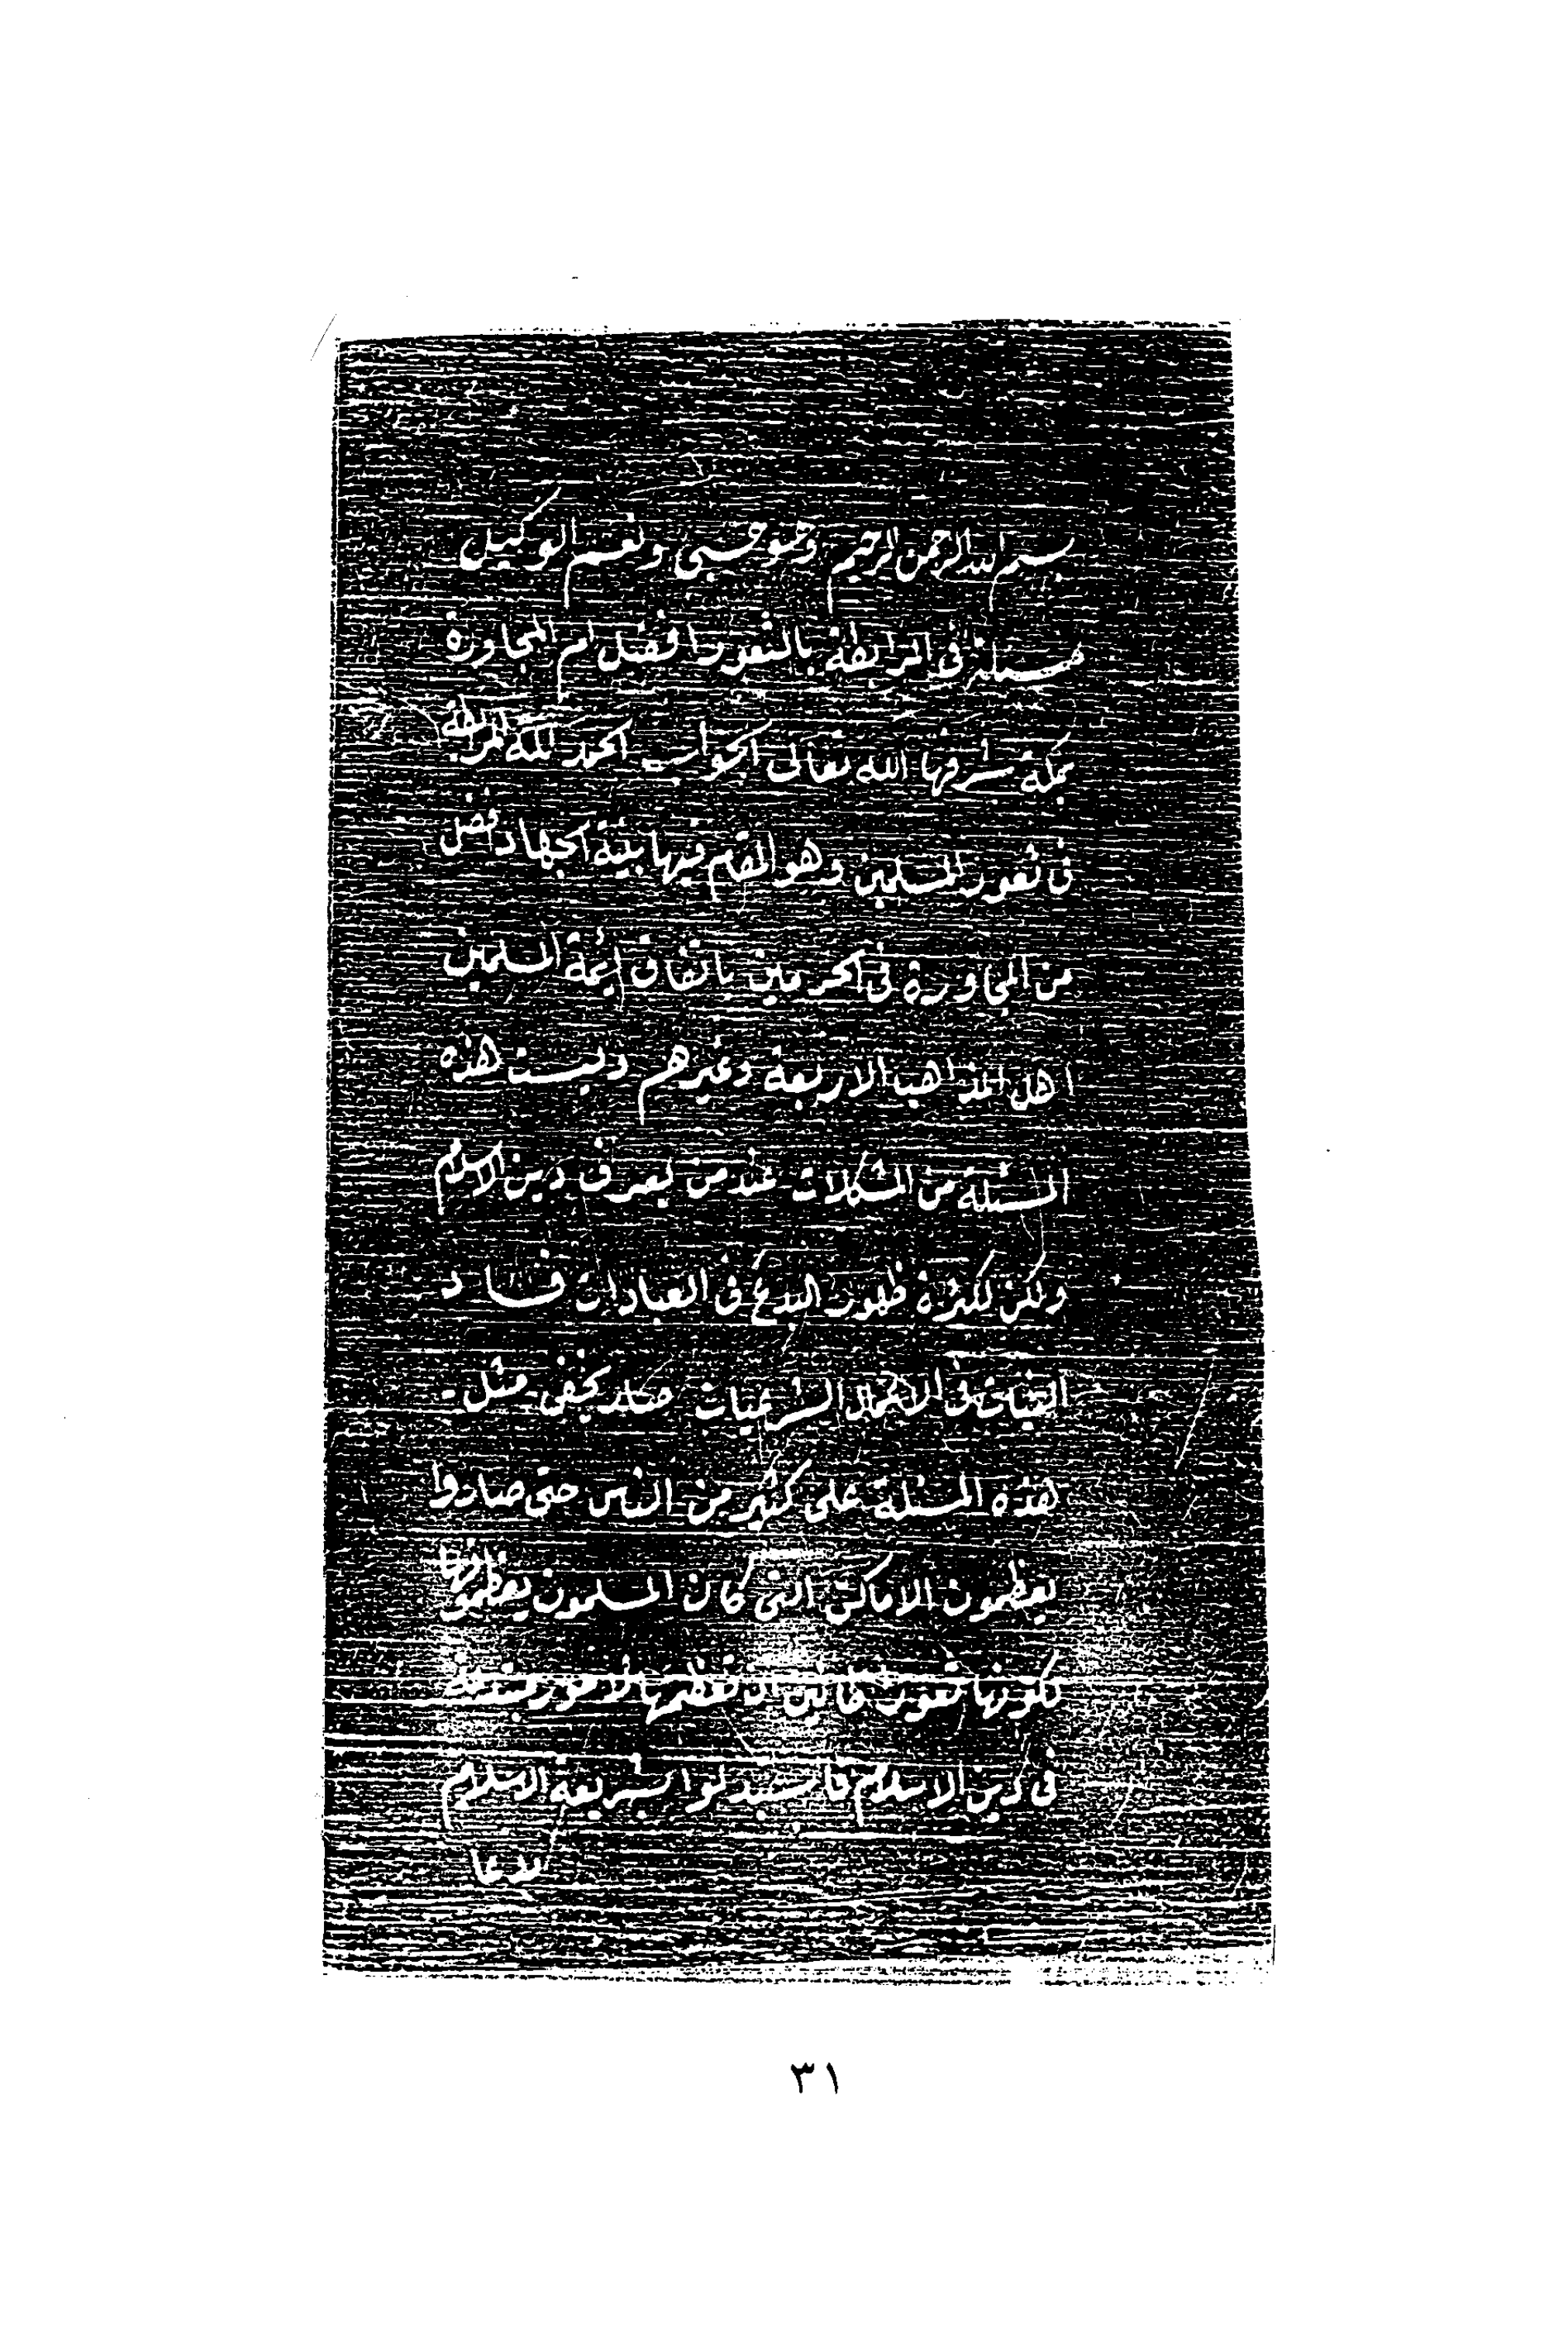 بسم الله الرحمن الرحيم وهو حسبي ونعم الوكيل
مسئلة في المرابطة بالثغور افضل ام المجاورة
بمكة شرفها الله تعالى الجواب الحمد لله المرابطة
في ثغور المسلمين وهو المقام فيها بنية الجهاد افضل
من المجاورة في الحرمين باتفاق ايمة المسلمين
اهل المذاهب الاربعة وغيرهم وليست هذه
المسئلة من المشكلات عند من يعرف دين الاسلام
ولكن لكثرة ظهور البدع في العبادات وفساد
النيات في الاعمال الشرعيات صار يخفى مثل
هذه المسئلة على كثير من الناس حتى صاروا
يعظمون الاماكن التي كان المسلمون يعظمونها
لكونها ثغورا ظانين ان تعظيمها لامور مبتدعة
في دين الاسلام فاستبدلوا بشريعة الاسلام
٣١